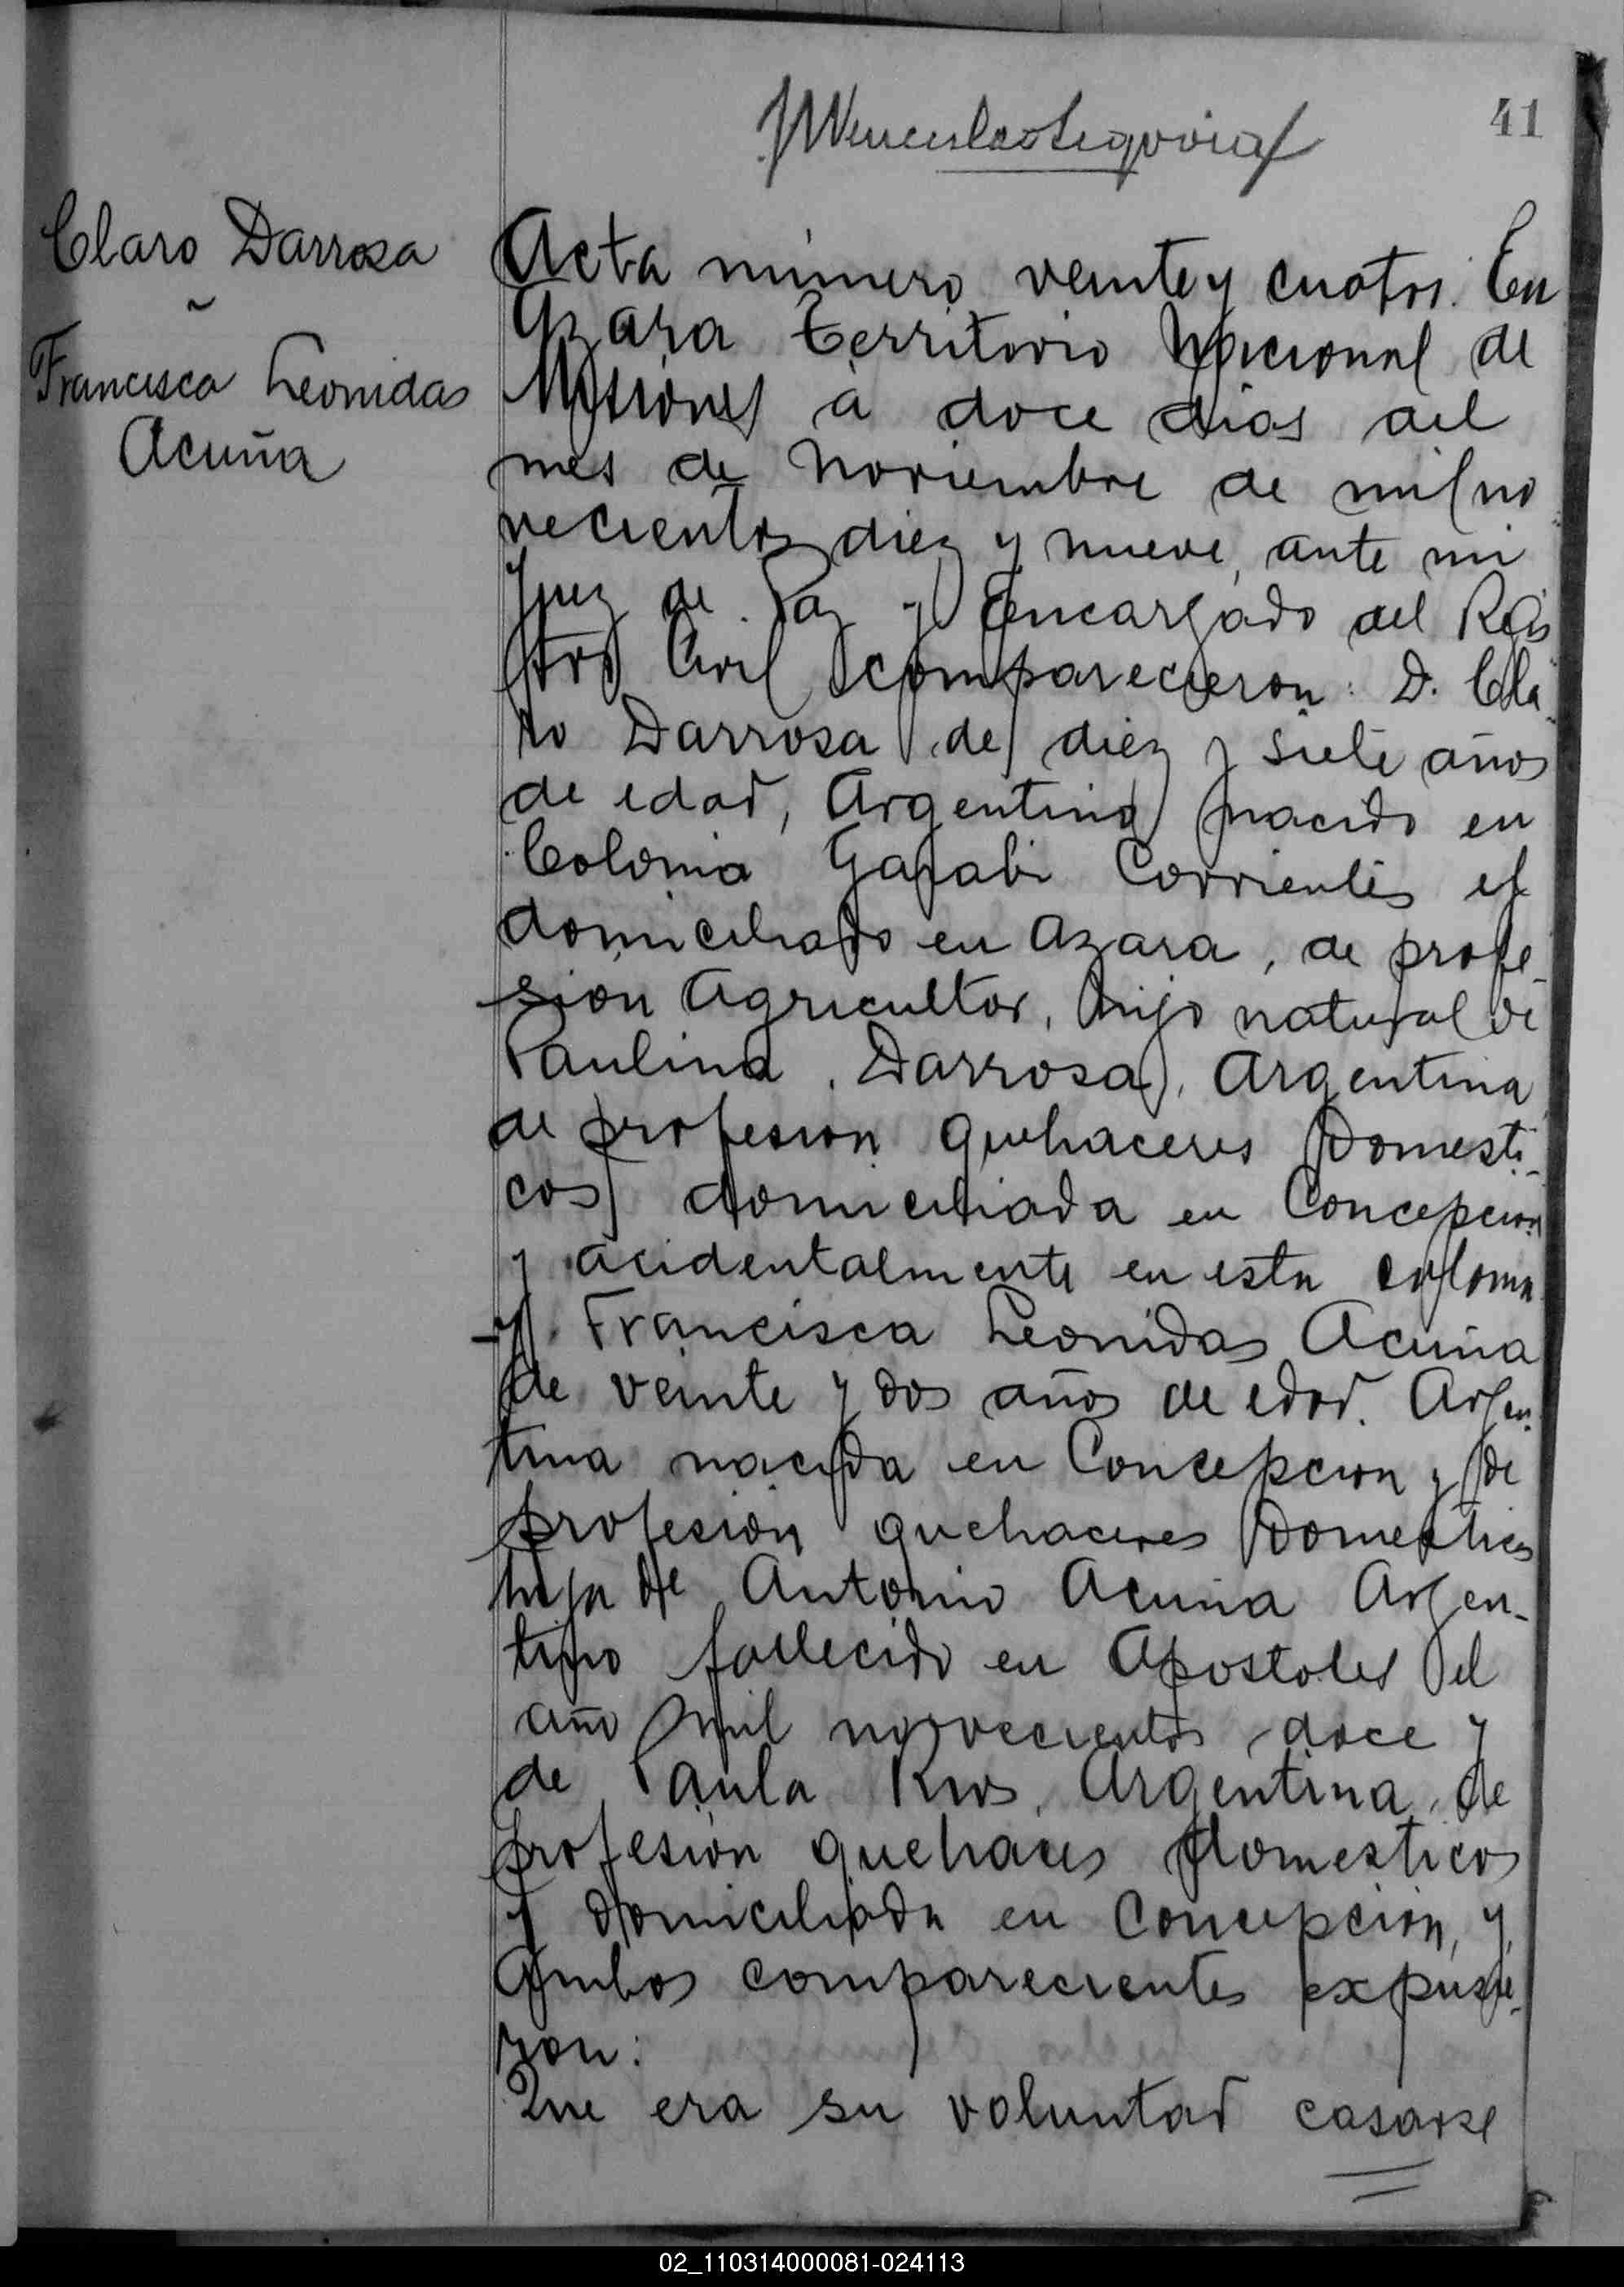 41
Claro Darrosa
~
Francisca Leonidas
Acuña
Acta número veinte y cuatro. En
Azara territorio Nacional de
Misiones á doce dias del
mes de Noviembre de mil no
vecientos diez y nueve, ante mi
Juez de Paz y Encargado del Regis
tro Civil comparecieron: D. Cla
ro Darrosa de diez y siete años
de edad, Argentino nacido en
Colonia Garabi Corrientes
domiciliado en Azara, de profe-
sion Agricultor, hijo natural de
Paulina Darrosa, Argentina
de profesion quehaceres Domesti-
cos domiciliada en Concepcion
y acidentalmente en esta colonia
-y Francisca Leonidas Acuña
de veinte y dos años de edad. Argen-
tina nacida en Concepcion y de
profesion quehaceres Domesticos
hija de Antonio Acuña Argen-
tino fallecido en Apostoles el
año mil novecientos doce y
de Paula Rios, Argentina, de
profesión quehaces domesticos
y domiciliada en Concepción, y
Ambos comparecientes expusie-
ron:
Que era su voluntad casarse
02_110314000081-024113